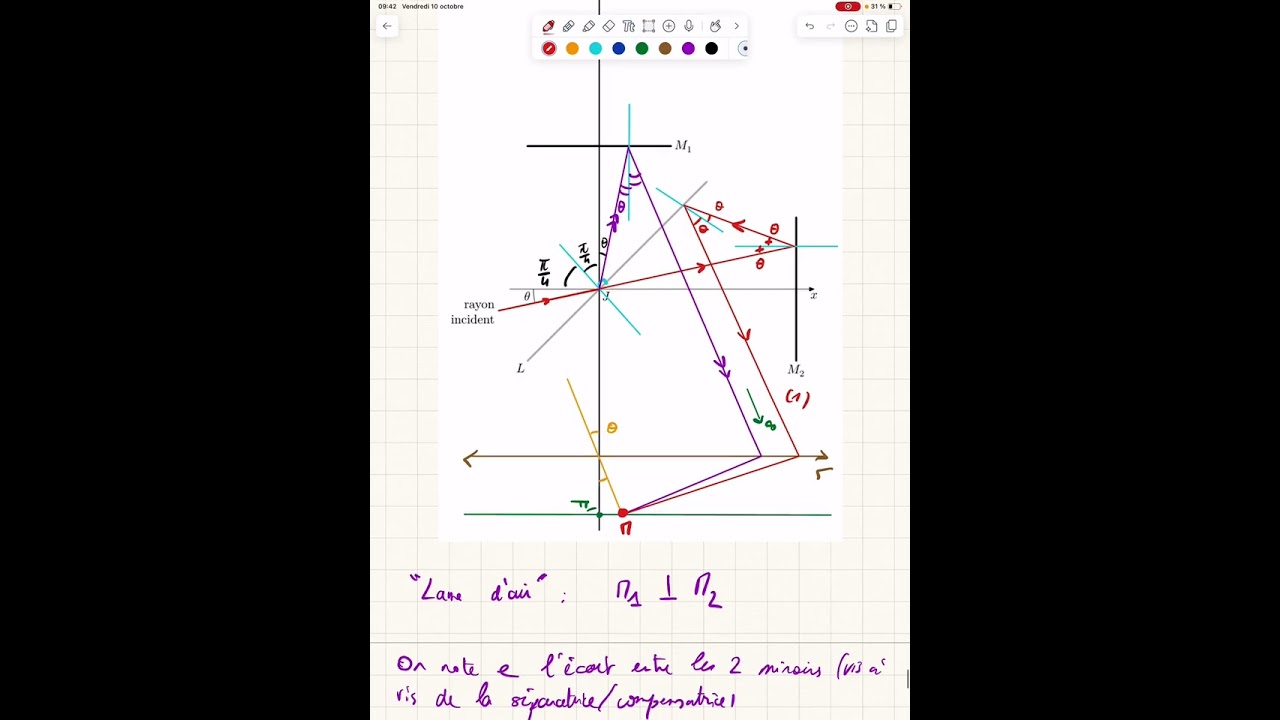 09:42 Vendredi 10 octobre
31 %
M₁
θ
θ
θ
θ
π/4
π/4
θ
θ
θ
J
x
rayon
incident
L
M₂
(1)
∞
θ
F'
M
"Lame d'air" : M₁ ⊥ M₂
On note e l'écart entre les 2 miroirs (vis à
vis de la séparatrice/compensatrice)